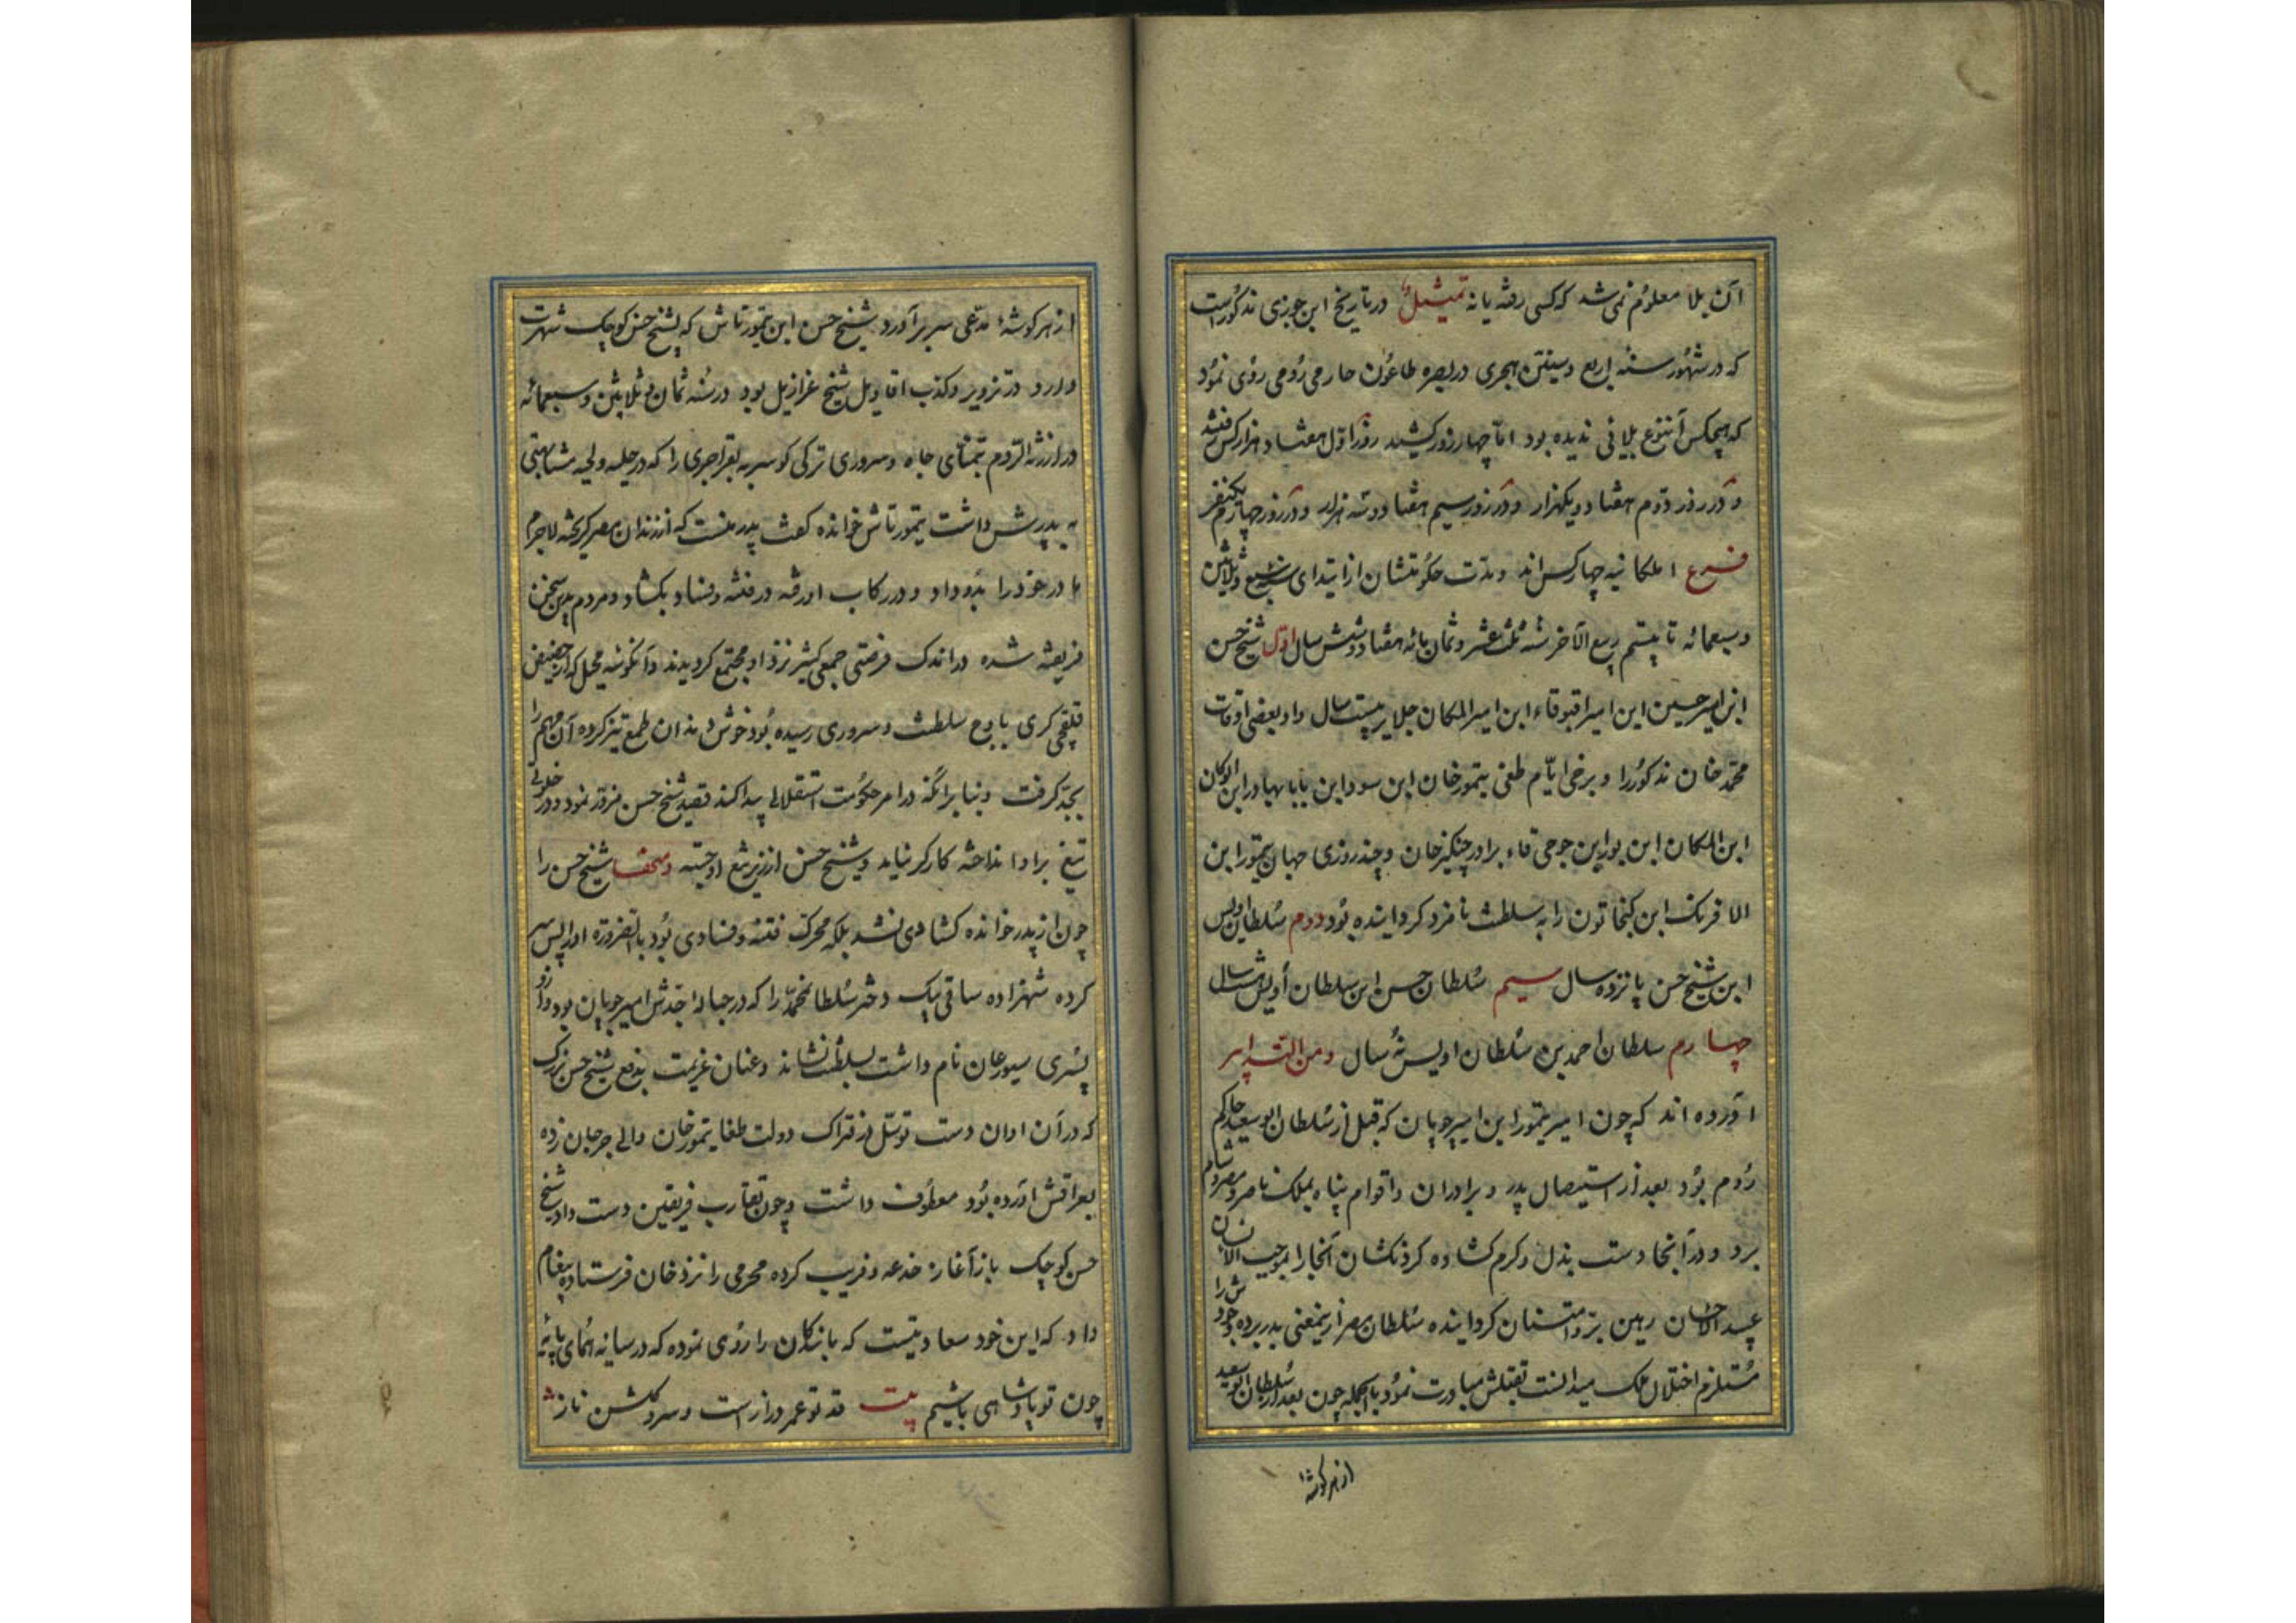 آن بلا معلوم نمی شد که کسی رفته یا نه تمثیل در تاریخ ابن جوزی مذکورست
که در شهور سنه اربع وستین هجری در بصره طاعون جارمی رومی روی نمود
که هیچکس آن نوع بلائی ندیده بود اما چهار روز کشید روز اول هفتاد هزار کس رفتند
و در روز دوم هفتاد و یکهزار و در روز سیم هفتاد و سه هزار و در روز چهارم یکنفر
فرع ایلکانیه چهار کس اند ومدت حکومتشان از ابتدای سنه سبع وثلاثین
وسبعمائه تا بیستم ربیع الآخر سنه ثلث عشر وثمان مائه هفتاد وشش سال اول شیخ حسن
ابن امیر حسین ابن امیر اقبوقاء ابن امیر ایلکان جلایر بیست سال واو بعضی اوقات
محمد خان مذکور را و برخی ایام طغی تیمور خان ابن سودا بن بابا بهادر ابن ابوکان
ابن ایلکان ابن بور ابن جوجی قاء برادر چنگیز خان و چند روزی جهان تیمور ابن
الافرنک ابن کنجاتون را به سلطنت نامزد کردانیده بود دوم سلطان اویس
ابن شیخ حسن پانزده سال سیم سلطان حسن ابن سلطان اویس هشت سال
چهارم سلطان احمد بن سلطان اویس نه سال ومن التدابیر
آورده اند که چون امیر تیمور ابن امیر چوپان که قبل از سلطان ابو سعید حاکم
روم بود بعد از استیصال پدر و برادران واقوام پناه بملک ناصر ومصر وشام
برد ودر آنجا دست بذل وکرم کشاده کردنکشان آنجا را بموجب الانسان
عبید الاحسان رهین بر وامتنان کردانیده سلطان مصر ازینمعنی بدر برده وجودش را
مستلزم اختلال ملک میدانست بقتلش مبادرت نمود بالجمله چون بعد از سلطان ابو سعید
از هر کوشه
از هر کوشهٔ مدعی سر بر آورد شیخ حسن ابن تیمور تاش که بشیخ حسن کوچک شهرت
دارد در تزویر وکذب اقاویل شیخ عزازیل بود در سنه ثمان و ثلاثین و سبعمائه
در ارزنة الروم بتمنای جاه وسروری ترکی کوسر به بقراجری را که در حلیه ولحیه مشابهتی
به پدرش داشت تیمور تاش خوانده گفت پدر منست که از زندان مصر گریخته لاجرم
مادر خود را بدو داد ودر رکاب او رفته در فتنه وفساد بکشاد ومردم بدین سخن
فریفته شده در اندک فرصتی جمعی کثیر نزد او مجتمع کردیدند و آنکوشه محل که از حضیض
قلقچی کری باوج سلطنت وسروری رسیده بود خوش دندان طمع تیز کرده آن مهم را
بجد گرفت وبنا بر آنکه در امر حکومت استقلالی پیدا کند قصد شیخ حسن مزور نمود و در خلوتی
تیغ بر او انداخته کارکر نیاید وشیخ حسن از زیر تیغ او جسته ومخفا شیخ حسن را
چون از پدر خوانده کشادی نشد بلکه محرک فتنه وفسادی بود بالضروره او را پس سر
کرده شهزاده ساقی بیک دختر سلطان محمد را که در حباله جدش امیر چوپان بود واز او
پسری سیورغان نام داشت بسلطنت نشاند وعنان عزیمت بدفع شیخ حسن بزرک
که در آن اوان دست توسل از فتراک دولت طغا تیمور خان والی جرجان زده
بعراقش آورده بود معطوف داشت وچون تقارب فریقین دست داد شیخ
حسن کوچک باز آغاز خدعه وفریب کرده محرمی را نزد خان فرستاده پیغام
داد که این خود سعادتیست که بابندکان را روی نموده که در سایه همای پایه
چون تو پادشاهی باشیم بیت قد تو عمر درازست وسرو کلشن ناز